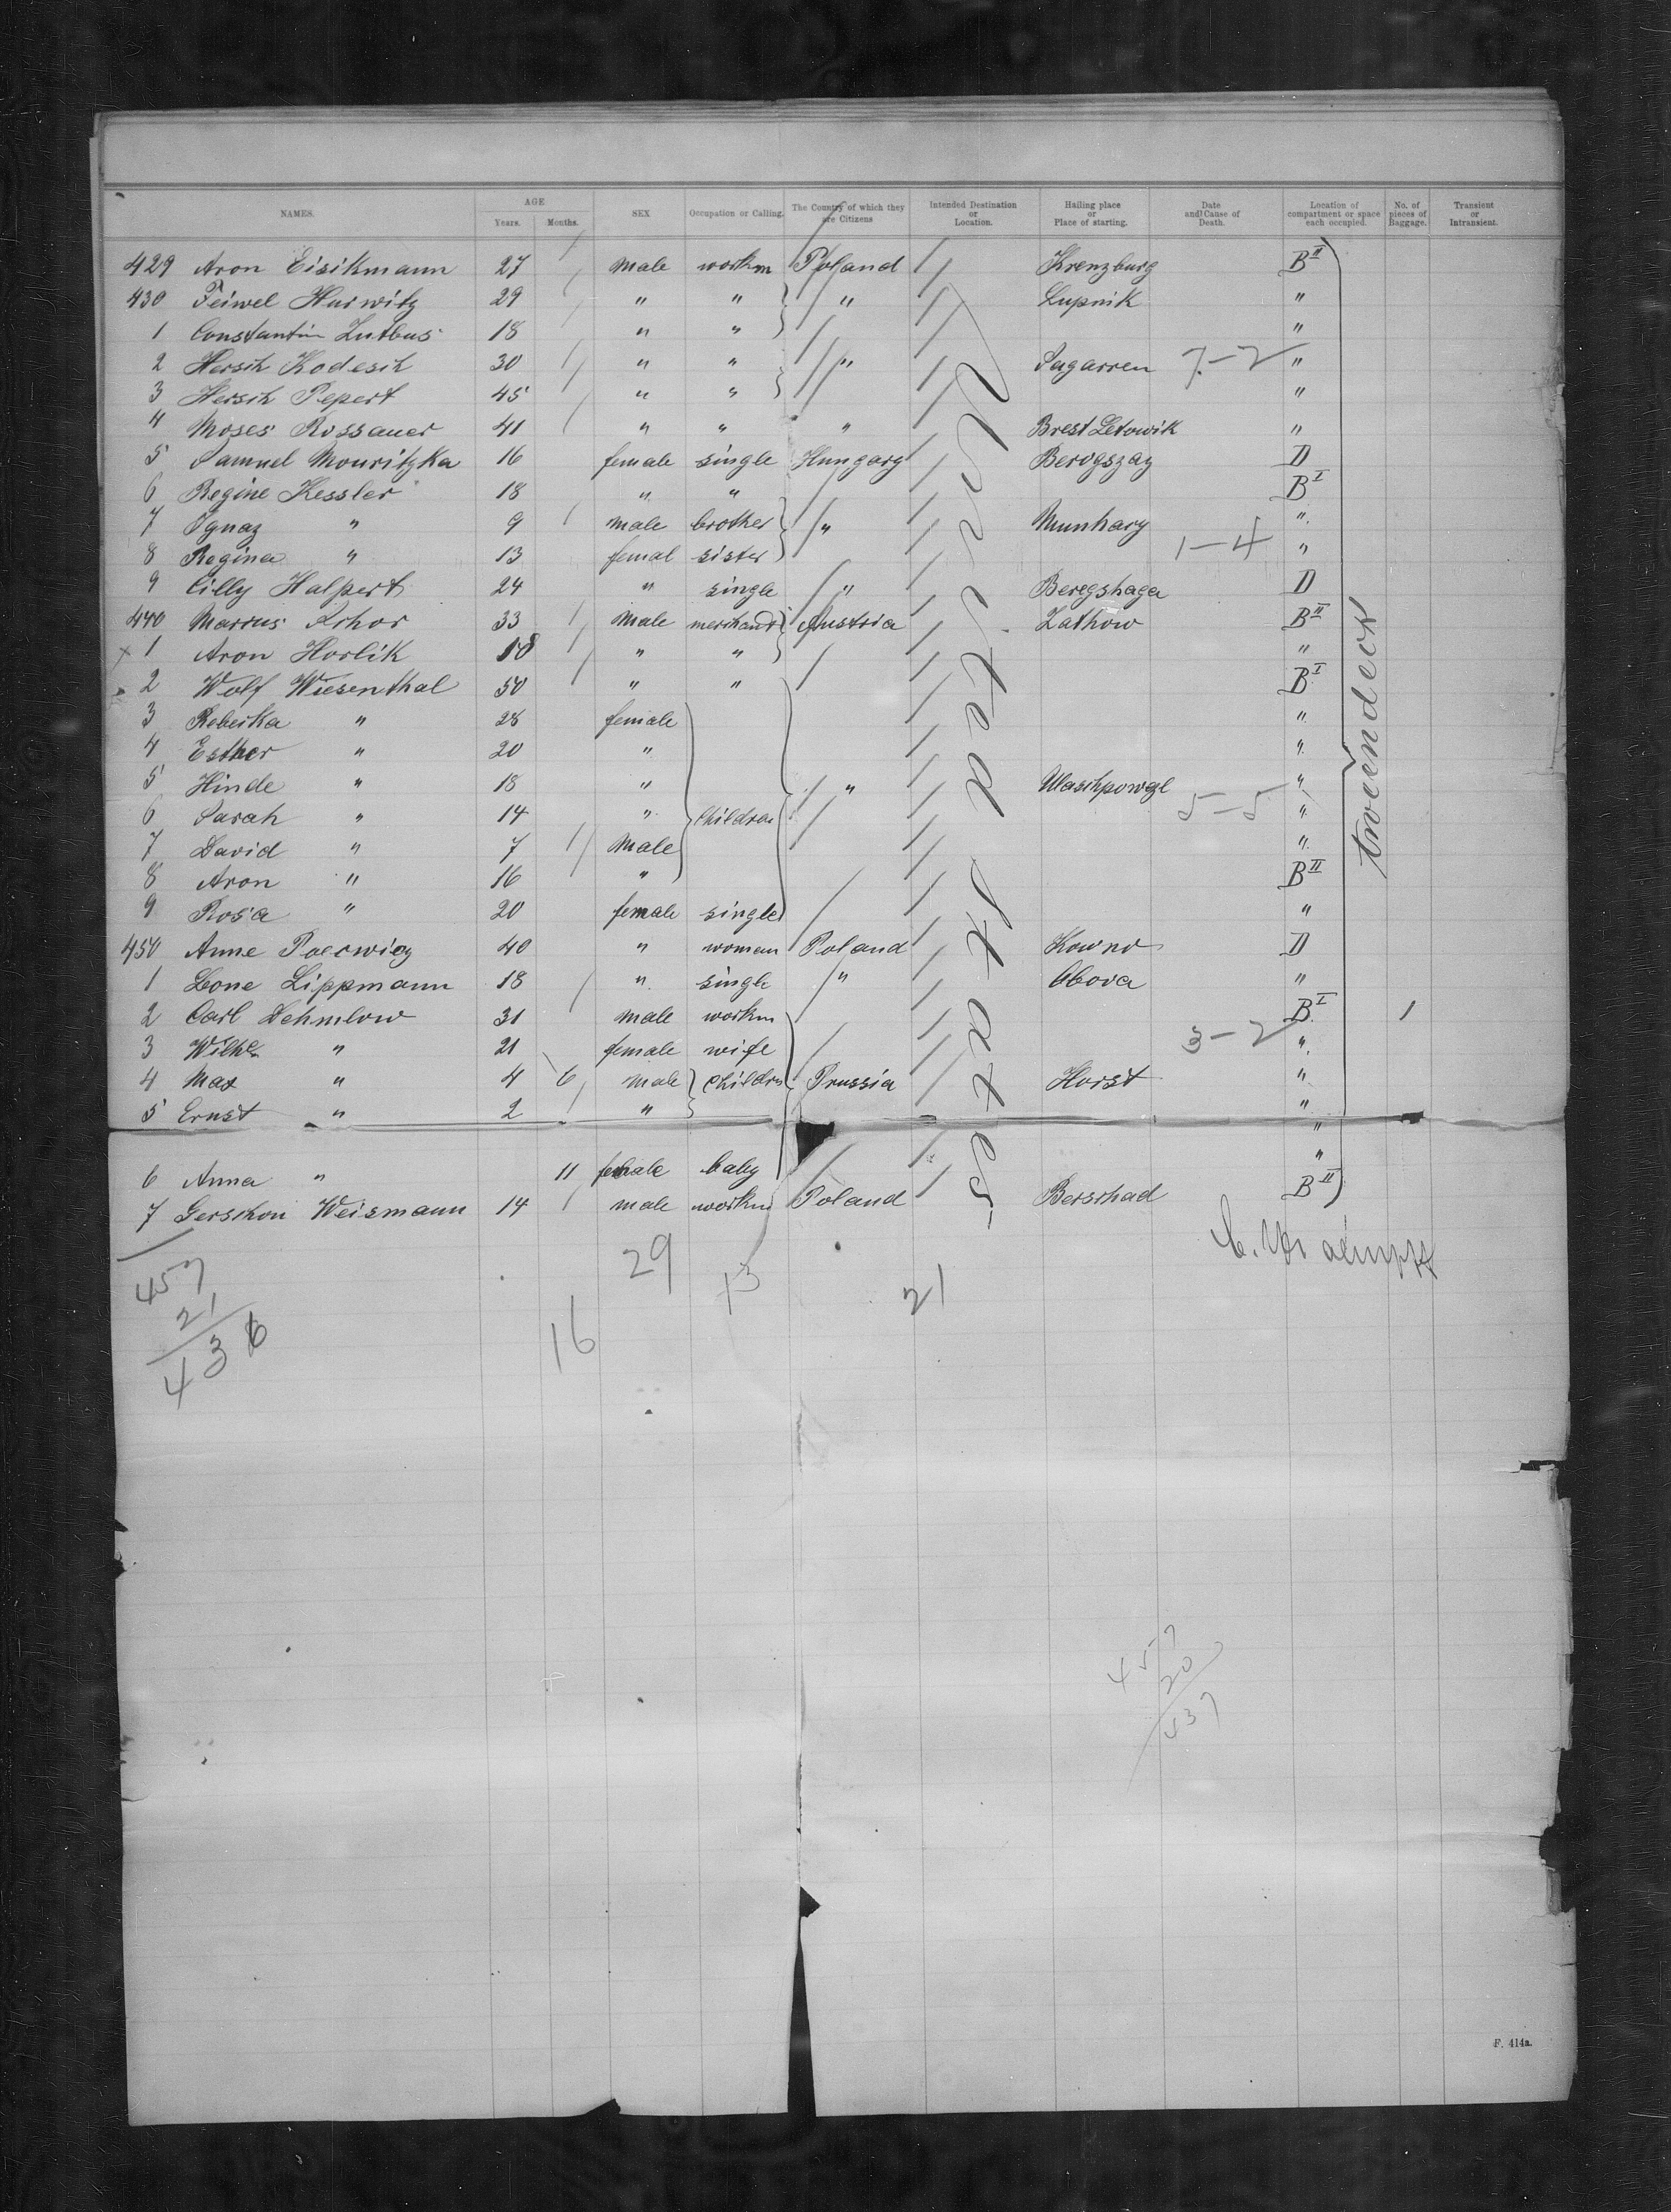 NAMES. AGE Years. Months. SEX Occupation or Calling. The Country of which they are Citizens Intended Destination or Location. Hailing place or Place of starting. Date and Cause of Death. Location of compartment or space each occupied. No. of pieces of Baggage. Transient or Intransient.
429 Aron Eisikmann 27 male workm Poland Krenzburg B II
430 Feiwel Hurwitz 29 " " " Lupnik "
1 Constantin Lutbus 18 " " "
2 Hersch Kodesch 30 " " " Sagarren 7-2 "
3 Hersch Pepert 45 " " "
4 Moses Rossauer 41 " " " Brest Letowik "
5 Samuel Mouritzka 16 female single Hungary Berogszay D
6 Regine Kessler 18 " " B I
7 Ignaz " 9 male brother " Munhary "
8 Regina " 13 femal sister 1-4 "
9 Cilly Halpert 24 " single " Beregshaga D
440 Marcus Achor 33 male merchand Austria Zathow B II
1 Aron Horlik 18 " " "
2 Wolf Wiesenthal 50 " " B I
3 Rebecka " 28 female "
4 Esther " 20 " "
5 Hinde " 18 " " "
6 Sarah " 14 " Children 5-5 "
7 David " 7 Male "
8 Aron " 16 " B II
9 Rosa " 20 female single "
450 Anne 40 " woman Poland Kowno D
1 Leone Lippmann 18 " single " Obova "
2 Carl Dehmlow 31 male workm B I 1
3 Wilhe " 21 female wife 3-2 "
4 Max " 4 6 male Childrn Prussia Horst "
5 Ernst " 2 " "
"
6 Anna " 11 female baby "
7 Gerschon Weismann 14 male workm Poland Berschad B II
tweendeck
29 13 21
457
21
436
16
457
20
437
F. 414a.